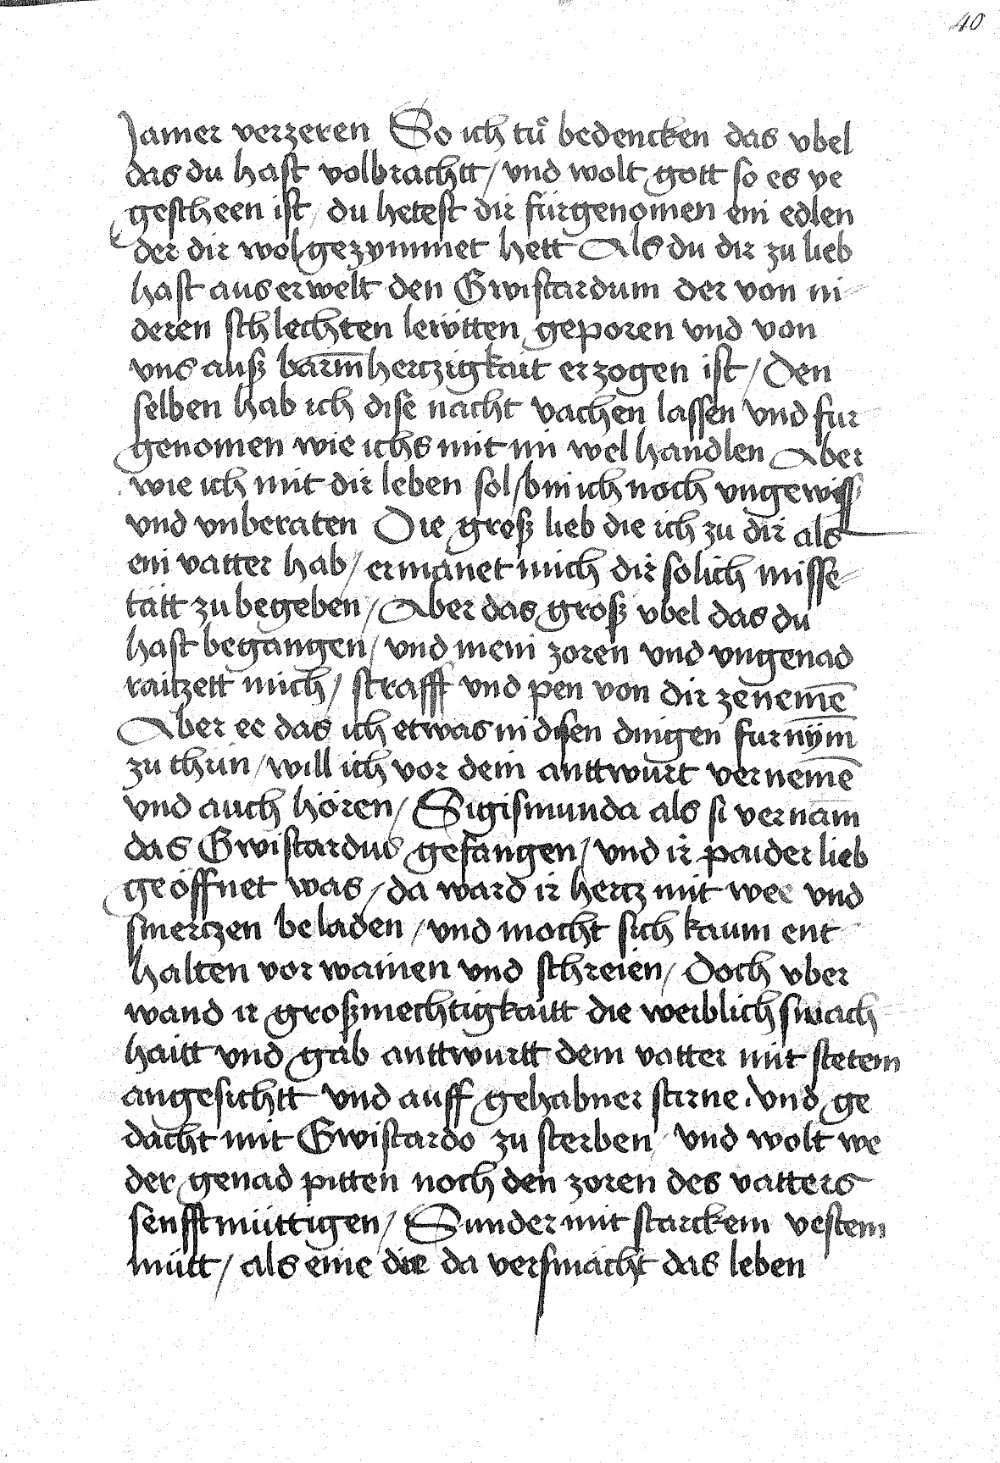 40
Jamer verzeren So ich tuͦ bedencken das vbel
das du hast volbrachtt / vnd wolt gott so es ye
gescheen ist / du hetest dir fürgenomen ein edlen
der dir wol gezymmet hett Als du dir zu lieb
hast auserwelt den Gwistardum der von ni
deren schlechten lewtten geporen vnd von
vns auß barm̄hertzigkait erzogen ist / Den
selben hab ich dise nacht vachen lassen vnd fur
genomen wie ichs mit im wel handlen Aber
wie ich mit dir leben sol / bin ich noch vngewiss
vnd vnberaten Die groß lieb die ich zu dir als
ein vatter hab / ermanet mich dir solich misse
tatt zu begeben / Aber das groß vbel das du
hast begangen / vnd mein zoren vnd vngenad
raitzett mich / strafff vnd pen von dir zenemē
Aber ee das ich etwas in disen dingen furnym̄
zu thun / will ich vor dein anttwurt vernemē
vnd auch hören / Sigismunda als si vernam
das Gwistardus gefangen / vnd ir paider lieb
geöffnet was / da ward ir hertz mit wee vnd
smertzen beladen / vnd mocht sich kaum ent
halten vor wainen vnd schreien / Doch vber
wand ir großmechtigkaitt die weiblich swach
haitt vnd gab anttwurtt dem vatter mit stetem
angesichtt vnd auff gehabner stirne . Vnd ge
dacht mit Gwistardo zu sterben / vnd wolt we
der genad pitten noch den zoren des vatters
senfftmüttigen / Sunder mit starckem vestem
mütt / als eine die da versmacht das leben